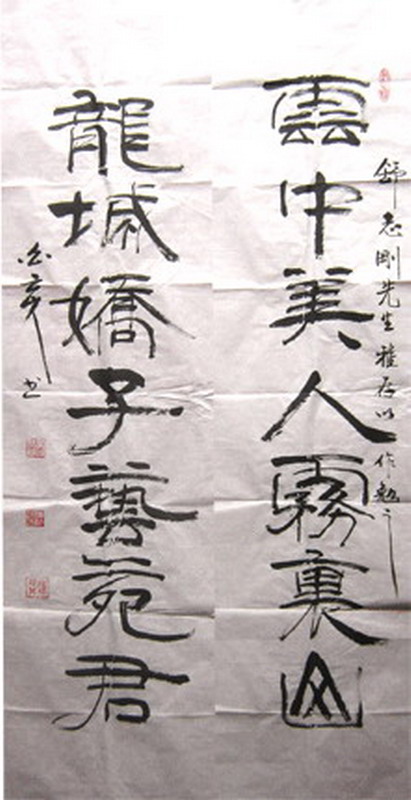 舒志剛先生雅存以作勉之
雲中美人霧裏山
龍城嬌子藝苑君
书